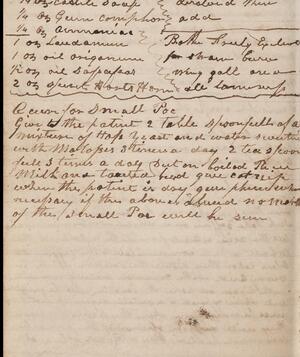 ¼ oz Castile Soap } dissolved then
¼ oz Gum Camphor } add
¼ oz Ammoniac
1 oz Laudanum } Bathe Freely
1 oz oil origanum } for
½ oz oil Sassafras } wind gall
2 oz spirit Harts Horn } all lameness
for Small Pox
Give to the patient 2 Table Spoonfulls of a
mixture of Hops Yeast and water sweetened
with Molasses 3 times a day 2 tea Spoon
fulls 3 times a day boiled
Milk and toasted bread give catnip
when the patient is dry give when
necessary if the above is no marks
of the Small Pox will be seen